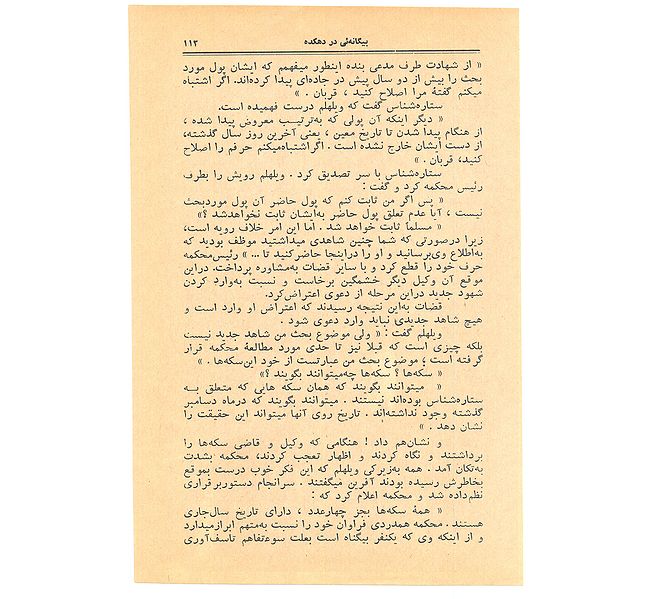 بیگانه‌ئی در دهکده ۱۱۳
« از شهادت طرف مدعی بنده اینطور میفهمم که ایشان پول مورد
بحث را بیش از دو سال پیش در جاده‌ای پیدا کرده‌اند. اگر اشتباه
میکنم گفتهٔ مرا اصلاح کنید ، قربان . »
ستاره‌شناس گفت که ویلهلم درست فهمیده است.
« دیگر اینکه آن پولی که به‌ترتیب معروض پیدا شده ،
از هنگام پیدا شدن تا تاریخ معین ، یعنی آخرین روز سال گذشته،
از دست ایشان خارج نشده است . اگراشتباه‌میکنم حرفم را اصلاح
کنید، قربان . »
ستاره‌شناس با سر تصدیق کرد . ویلهلم رویش را بطرف
رئیس محکمه کرد و گفت :
« پس اگر من ثابت کنم که پول حاضر آن پول موردبحث
نیست ، آیا عدم تعلق پول حاضر به‌ایشان ثابت نخواهدشد ؟»
« مسلماً ثابت خواهد شد . اما این امر خلاف رویه است،
زیرا درصورتی که شما چنین شاهدی میداشتید موظف بودید که
به‌اطلاع وی‌برسانید و او را دراینجا حاضرکنید تا ... » رئیس‌محکمه
حرف خود را قطع کرد و با سایر قضات به‌مشاوره پرداخت. دراین
موقع آن وکیل دیگر خشمگین برخاست و نسبت به‌وارد کردن
شهود جدید دراین مرحله از دعوی اعتراض‌کرد.
قضات به‌این نتیجه رسیدند که اعتراض او وارد است و
هیچ شاهد جدیدی نباید وارد دعوی شود .
ویلهلم گفت : « ولی موضوع بحث من شاهد جدید نیست
بلکه چیزی است که قبلا نیز تا حدی مورد مطالعهٔ محکمه قرار
گرفته است ؛ موضوع بحث من عبارتست از خود این‌سکه‌ها . »
« سکه‌ها ؟ سکه‌ها چه‌میتوانند بگویند ؟»
« میتوانند بگویند که همان سکه هایی که متعلق به
ستاره‌شناس بوده‌اند نیستند . میتوانند بگویند که درماه دسامبر
گذشته وجود نداشته‌اند . تاریخ روی آنها میتواند این حقیقت را
نشان دهد . »
و نشان‌هم داد ! هنگامی که وکیل و قاضی سکه‌ها را
برداشتند و نگاه کردند و اظهار تعجب کردند، محکمه بشدت
به‌تکان آمد . همه به‌زیرکی ویلهلم که این فکر خوب درست بموقع
بخاطرش رسیده بودند آفرین میگفتند . سرانجام دستوربرقراری
نظم‌داده شد و محکمه اعلام کرد که :
« همهٔ سکه‌ها بجز چهارعدد ، دارای تاریخ سال‌جاری
هستند . محکمه همدردی فراوان خود را نسبت به‌متهم ابرازمیدارد
و از اینکه وی که یکنفر بیگناه است بعلت سوءتفاهم تاسف‌آوری